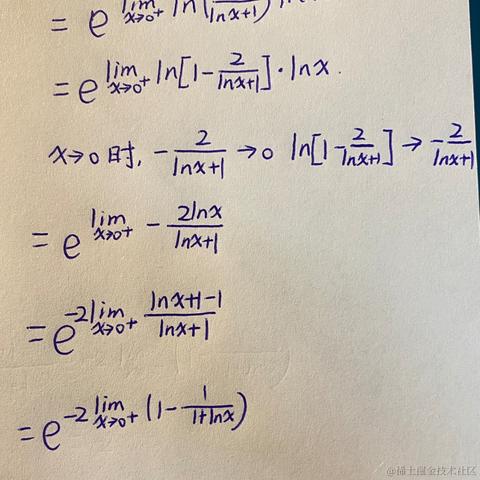 = e^{lim_{x→0⁺} ln(\frac{}{lnx+1}) ln
= e^{lim_{x→0⁺} ln[1-\frac{2}{lnx+1}]·lnx.
x→0时, -\frac{2}{lnx+1}→0 ln[1-\frac{2}{lnx+1}]→-\frac{2}{lnx+1}
= e^{lim_{x→0⁺} -\frac{2lnx}{lnx+1}}
= e^{-2lim_{x→0⁺} \frac{lnx+1-1}{lnx+1}}
= e^{-2lim_{x→0⁺} (1-\frac{1}{1+lnx})}
@稀土掘金技术社区